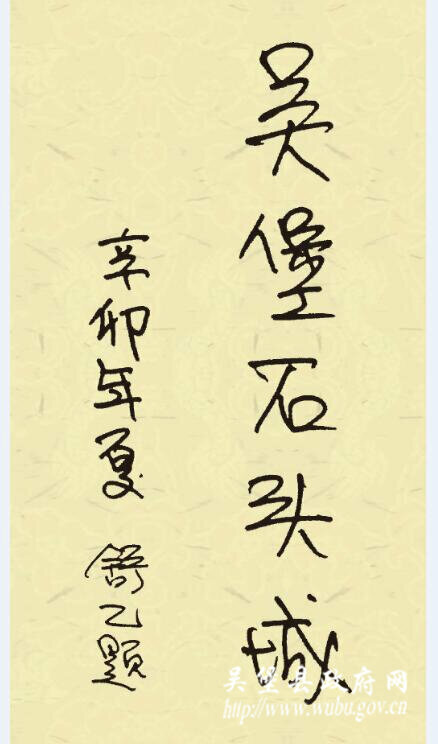 吴堡石头城
辛卯年夏 舒乙题
吴堡县政府网
http://www.wubu.gov.cn